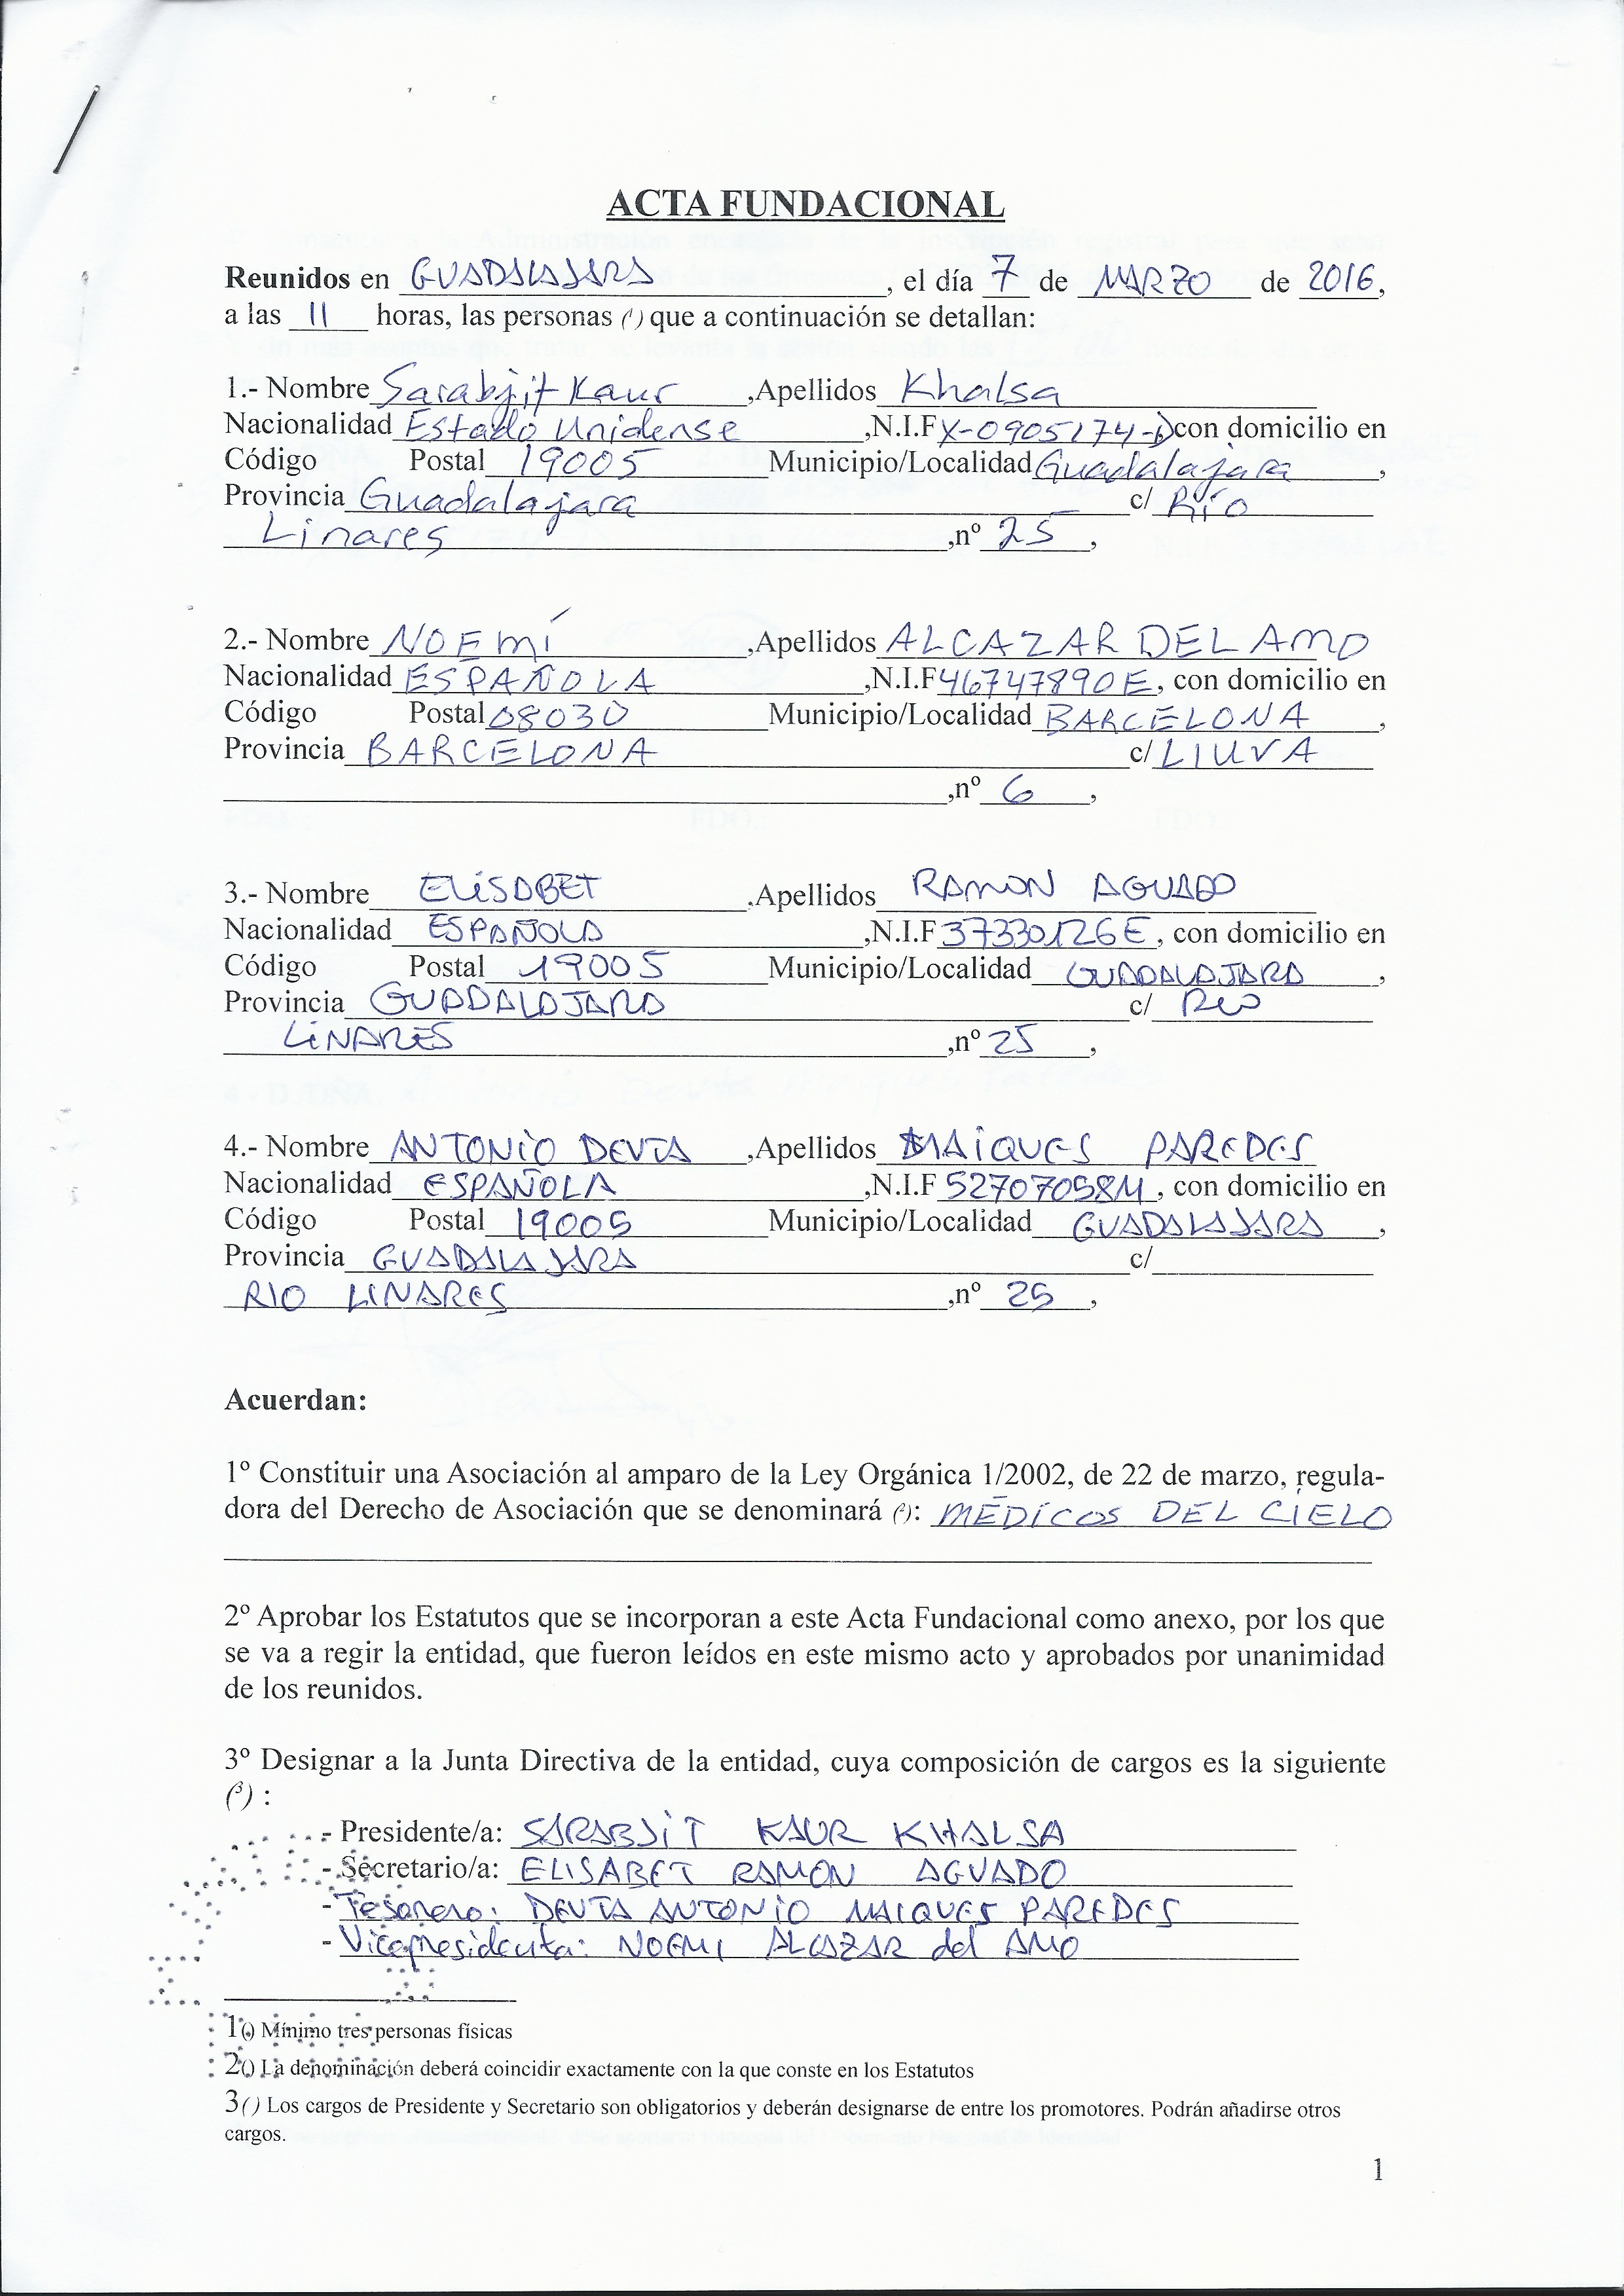 ACTA FUNDACIONAL
Reunidos en GUADALAJARA, el día 7 de MARZO de 2016,
a las 11 horas, las personas (¹) que a continuación se detallan:
1.- Nombre Sarabjit Kaur ,Apellidos Khalsa
Nacionalidad Estado Unidense ,N.I.F X-0905174-D con domicilio en
Código Postal 19005 Municipio/Localidad Guadalajara,
Provincia Guadalajara c/ Río
Linares ,nº 25,
2.- Nombre NOEMÍ ,Apellidos ALCAZAR DEL AMO
Nacionalidad ESPAÑOLA ,N.I.F 46747890E, con domicilio en
Código Postal 08030 Municipio/Localidad BARCELONA,
Provincia BARCELONA c/ LIUVA
,nº 6,
3.- Nombre ELISABET ,Apellidos RAMON AGUADO
Nacionalidad ESPAÑOLA ,N.I.F 37330126E, con domicilio en
Código Postal 19005 Municipio/Localidad GUADALAJARA,
Provincia GUADALAJARA c/ RIO
LINARES ,nº 25,
4.- Nombre ANTONIO DEVTA ,Apellidos MAIQUES PAREDES
Nacionalidad ESPAÑOLA ,N.I.F 52707058M, con domicilio en
Código Postal 19005 Municipio/Localidad GUADALAJARA,
Provincia GUADALAJARA c/
RIO LINARES ,nº 25,
Acuerdan:
1º Constituir una Asociación al amparo de la Ley Orgánica 1/2002, de 22 de marzo, regula-
dora del Derecho de Asociación que se denominará (²): MÉDICOS DEL CIELO
2º Aprobar los Estatutos que se incorporan a este Acta Fundacional como anexo, por los que
se va a regir la entidad, que fueron leídos en este mismo acto y aprobados por unanimidad
de los reunidos.
3º Designar a la Junta Directiva de la entidad, cuya composición de cargos es la siguiente
(³) :
- Presidente/a: SARABJIT KAUR KHALSA
- Secretario/a: ELISABET RAMON AGUADO
- Tesorero: DEVTA ANTONIO MAIQUES PAREDES
- Vicepresidenta: NOEMI ALCAZAR del AMO
1() Mínimo tres personas físicas
2() La denominación deberá coincidir exactamente con la que conste en los Estatutos
3() Los cargos de Presidente y Secretario son obligatorios y deberán designarse de entre los promotores. Podrán añadirse otros
cargos.
1